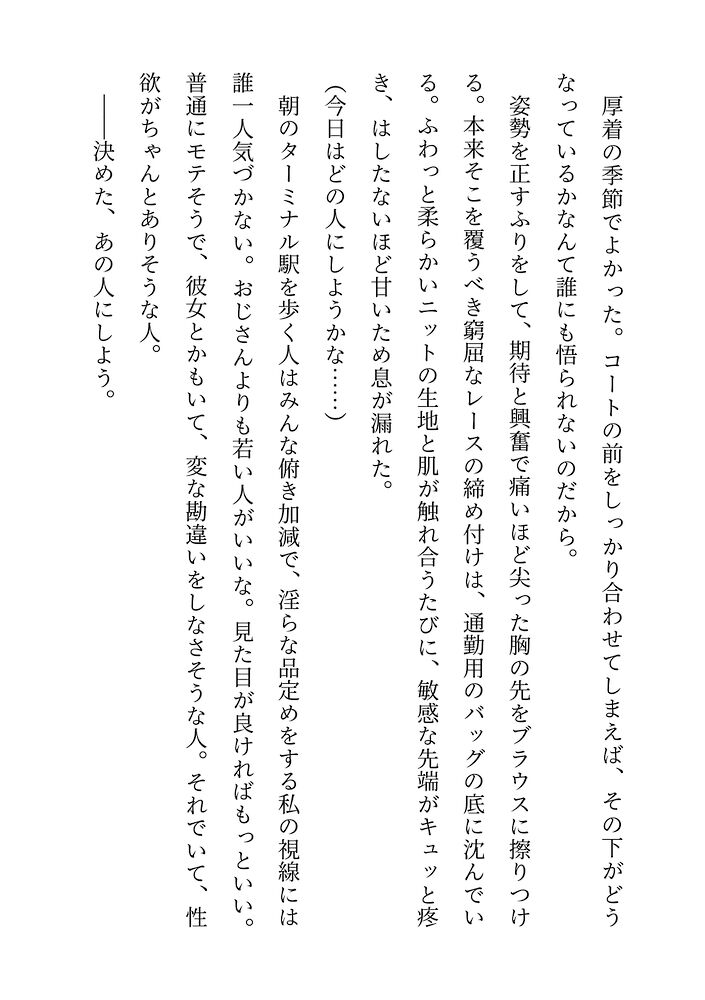 厚着の季節でよかった。コートの前をしっかり合わせてしまえば、その下がどう
なっているかなんて誰にも悟られないのだから。
姿勢を正すふりをして、期待と興奮で痛いほど尖った胸の先をブラウスに擦りつけ
る。本来そこを覆うべき窮屈なレースの締め付けは、通勤用のバッグの底に沈んでい
る。ふわっと柔らかいニットの生地と肌が触れ合うたびに、敏感な先端がキュッと疼
き、はしたないほど甘いため息が漏れた。
（今日はどの人にしようかな……）
朝のターミナル駅を歩く人はみんな俯き加減で、淫らな品定めをする私の視線には
誰一人気づかない。おじさんよりも若い人がいいな。見た目が良ければもっといい。
普通にモテそうで、彼女とかもいて、変な勘違いをしなさそうな人。それでいて、性
欲がちゃんとありそうな人。
――決めた、あの人にしよう。